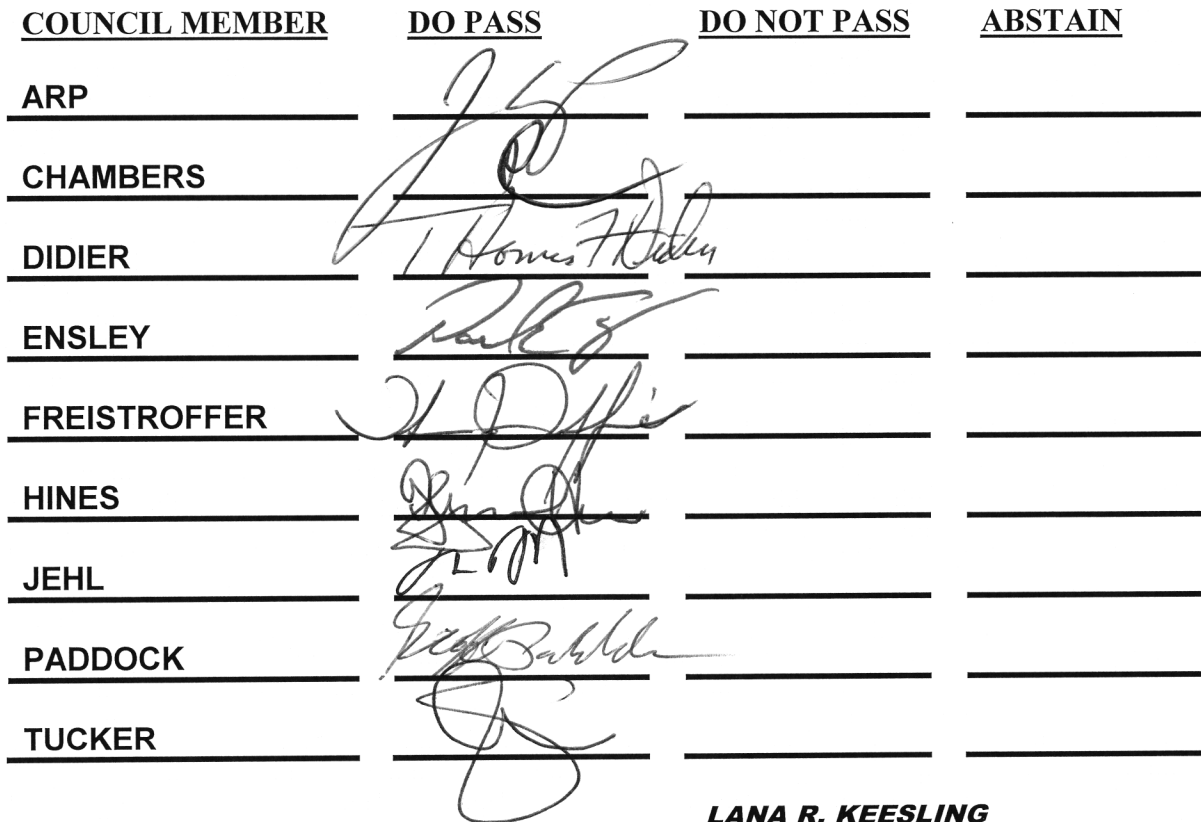 COUNCIL MEMBER DO PASS DO NOT PASS ABSTAIN
ARP
CHAMBERS
DIDIER Thomas F Didier
ENSLEY
FREISTROFFER
HINES
JEHL
PADDOCK
TUCKER
LANA R. KEESLING